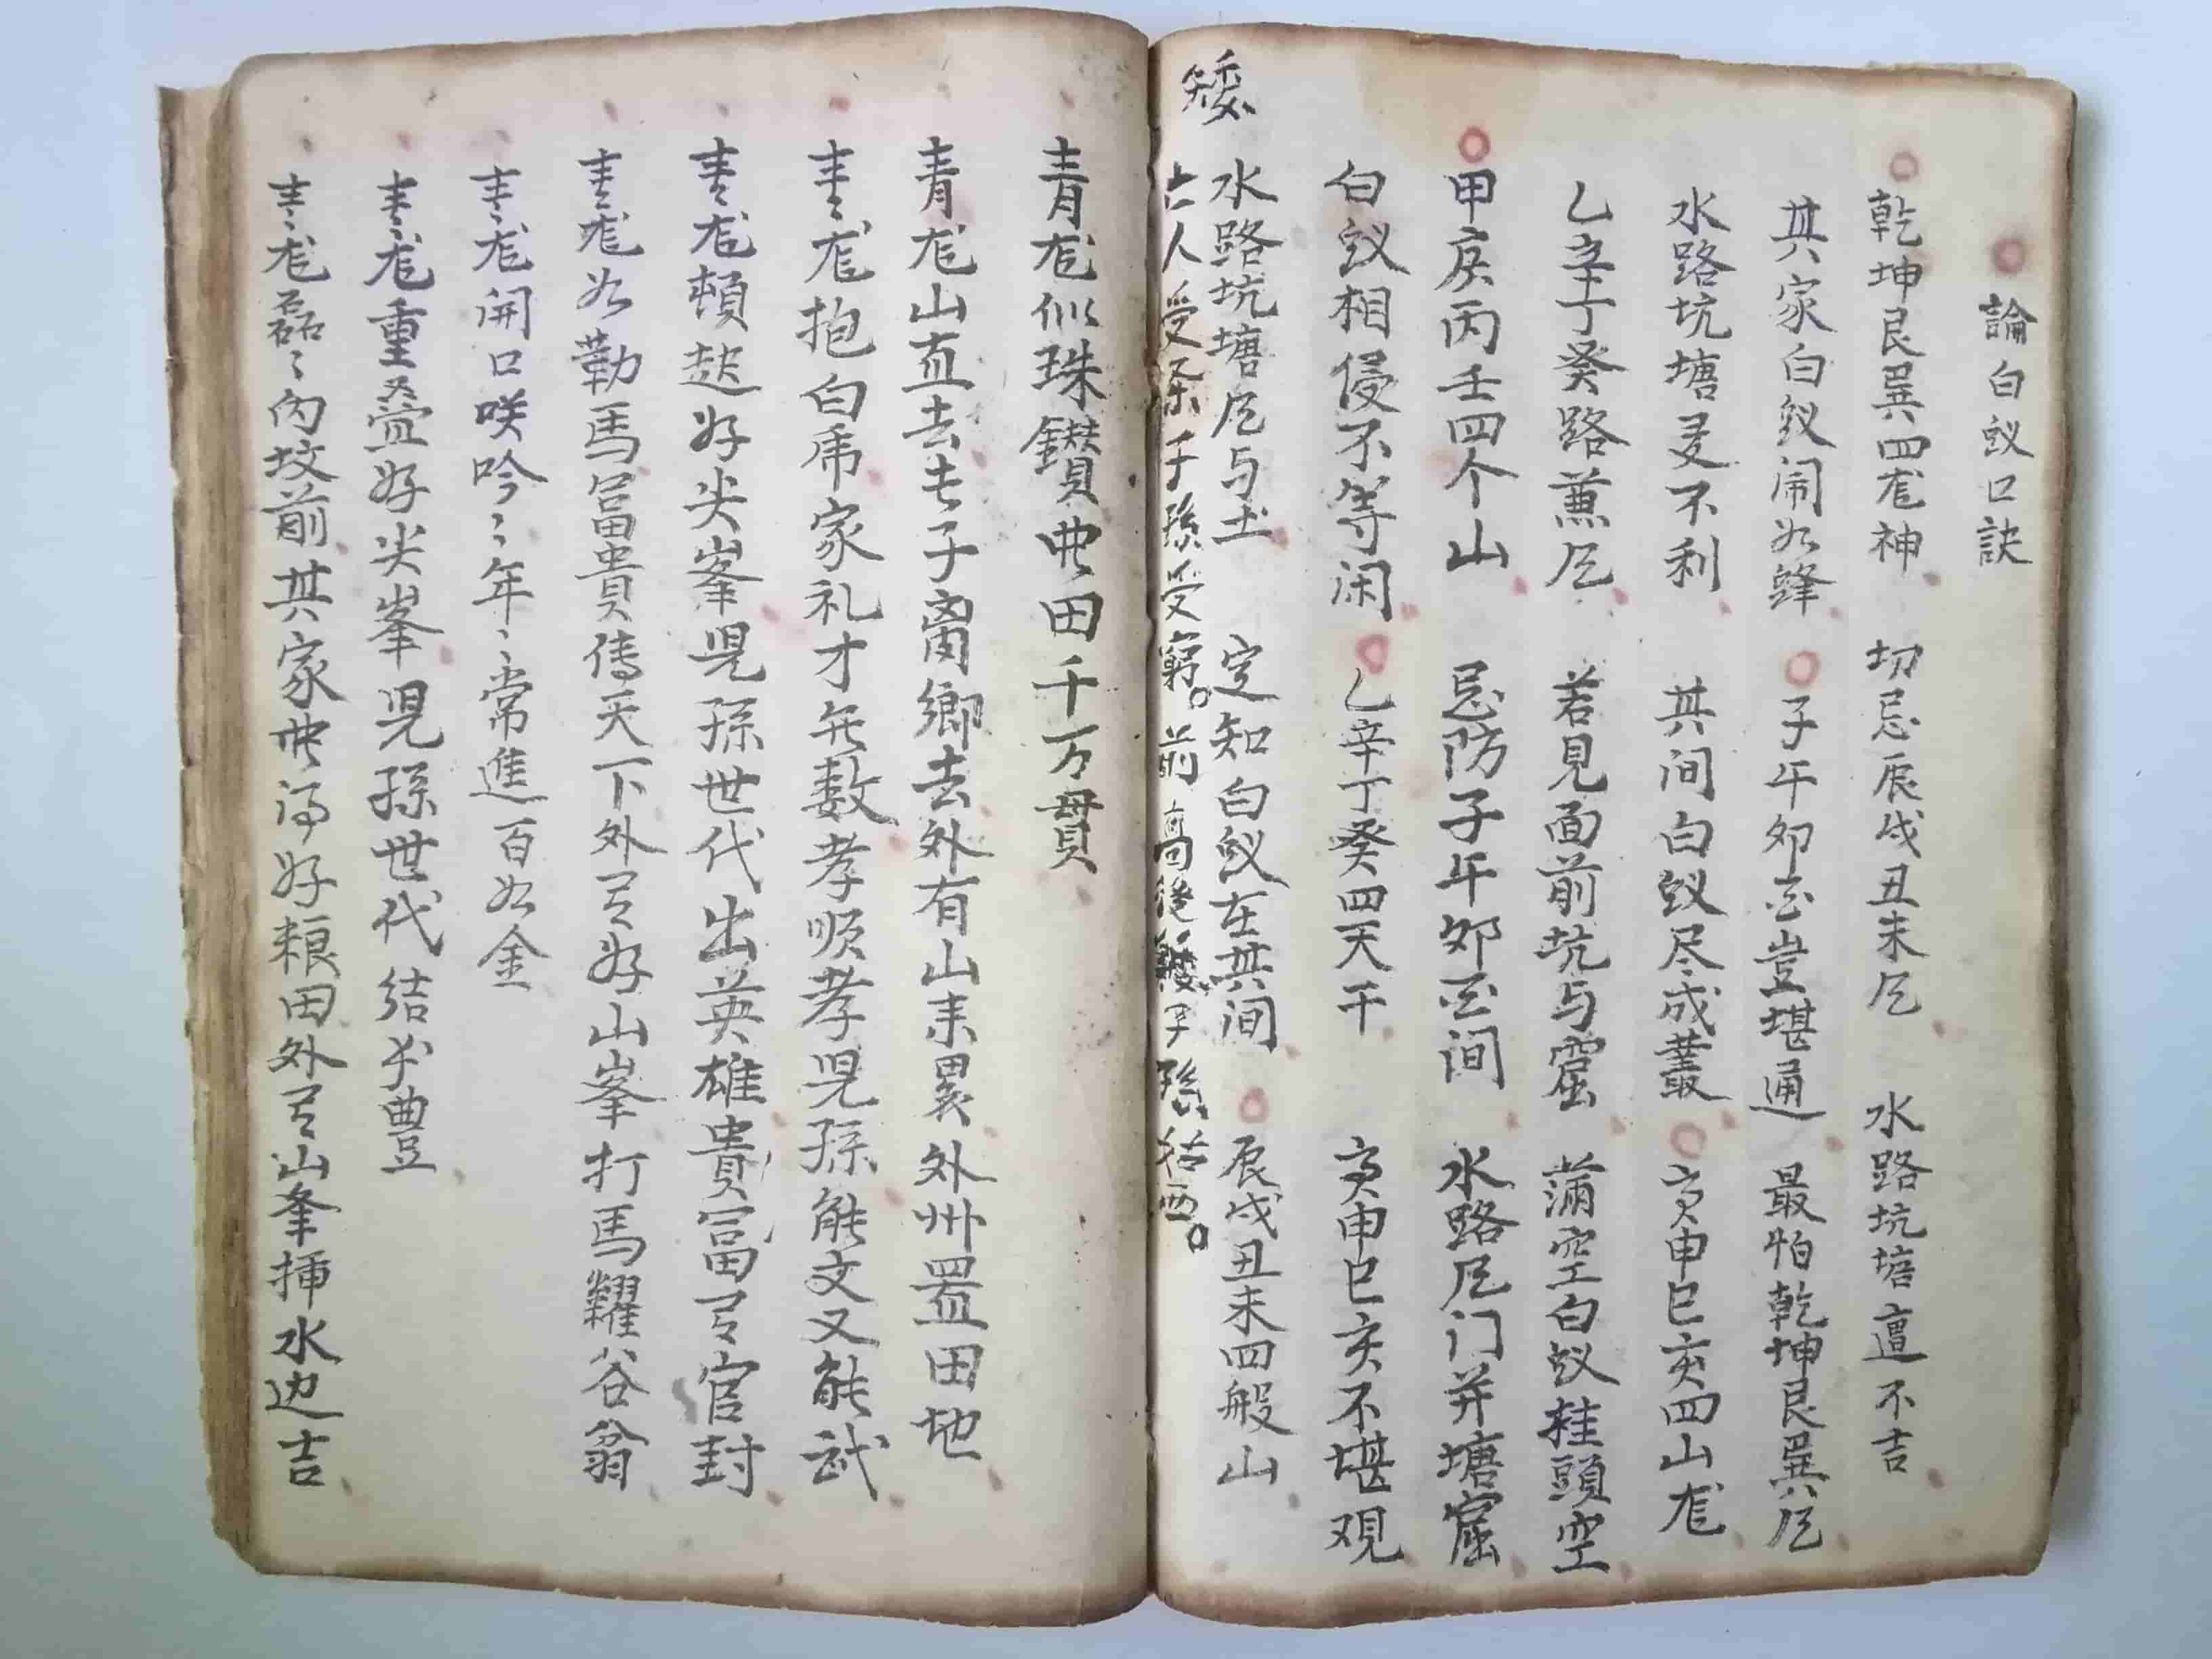 論白蚁口訣
乾坤艮巽四龙神 切忌辰戌丑未 水路坑塘 不吉
其家白蚁闹如蜂 子午卯酉豈堪通 最怕乾坤艮巽
水路坑塘 不利 其间白蚁尽成叢 寅申巳亥四山龙
乙辛丁癸路兼 若見面前坑与窟 蒲空白蚁柱頭空
甲庚丙壬四个山 忌防子午卯酉间 水路 门并塘窟
白蚁相侵不等闲 乙辛丁癸四天干 寅申巳亥不堪观
水路坑塘 与 定知白蚁在其间 辰戌丑未四般山
矮
人受 子孫受窮。前高後 子孫 。
青龙似珠鑚典田千万貫
青龙山直去去子离鄉去外有山来累外州置田地
青龙抱白虎家礼才 数孝順孝児孫能文又能武
青龙頓起好尖峯児孫世代出英雄貴冨 官封
青龙如勒馬冨貴傳天下外 好山峯打馬糶谷翁
青龙開口咲吟〻年〻常進百如金
青龙重叠好尖峯児孫世代結 豊
青龙磊〻内坟前其家典得好粮田外 山峯挿水边吉